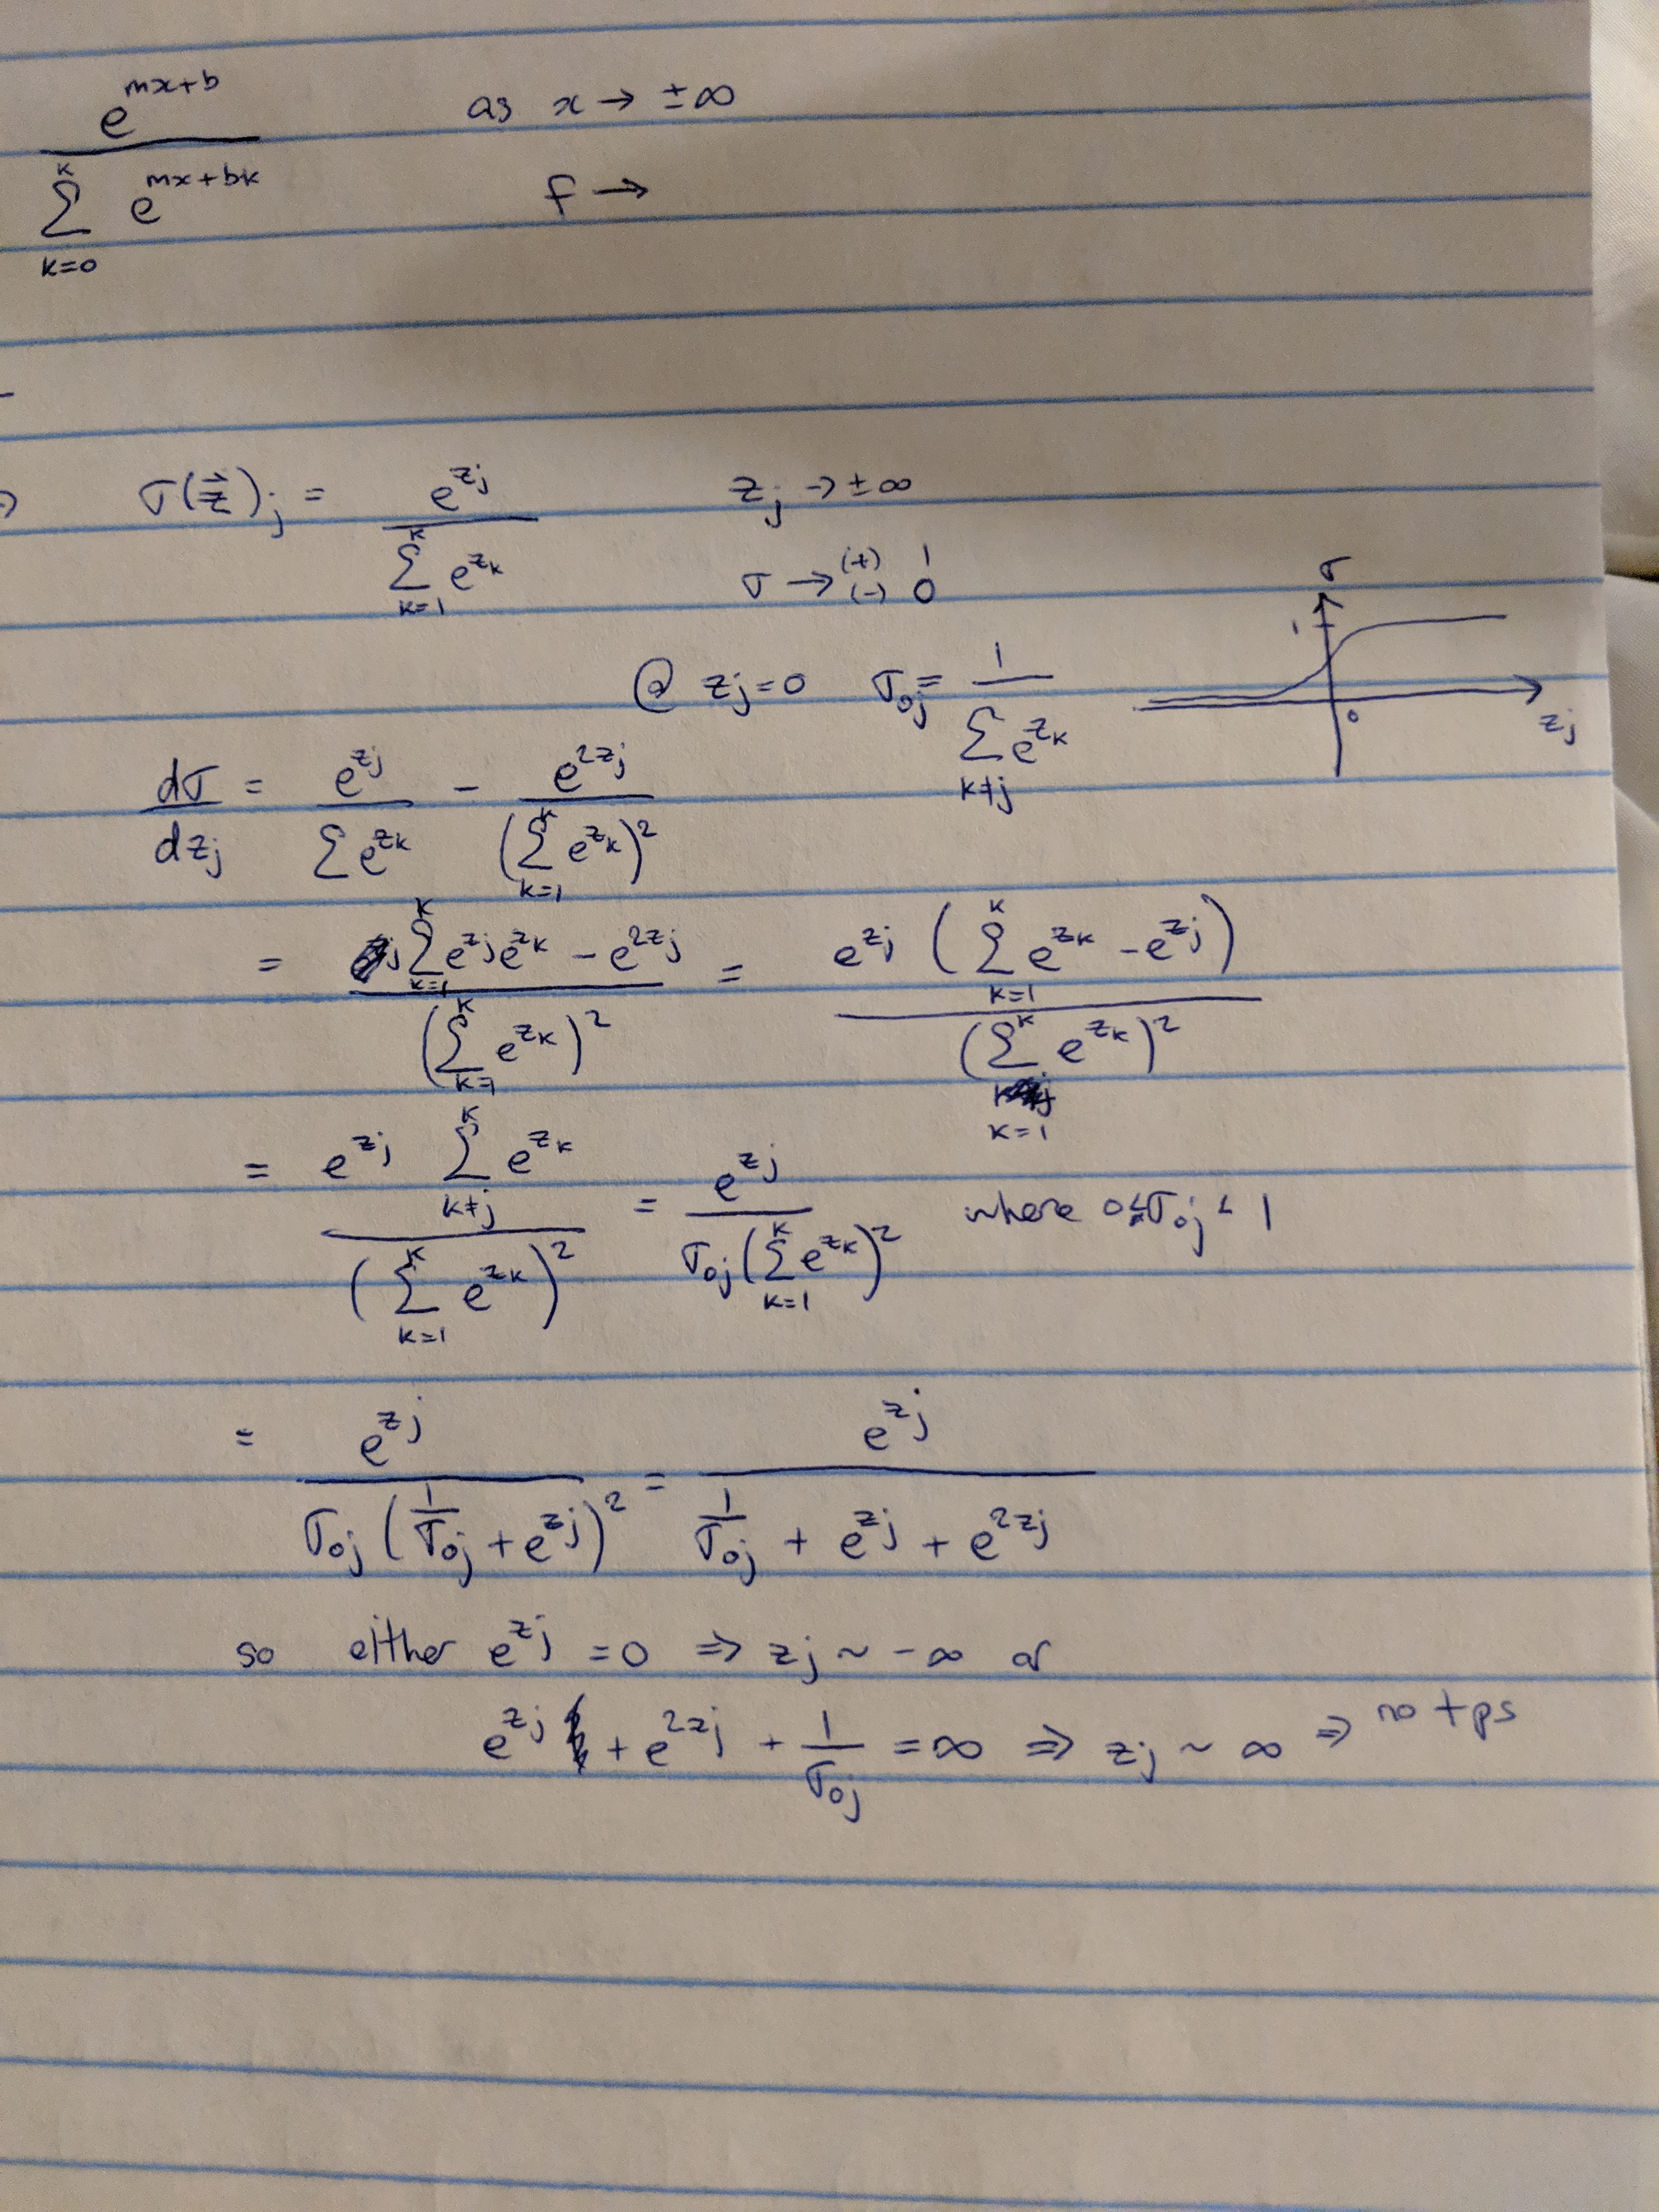 e^{mx+b} / \sum_{k=0}^{K} e^{mx+bk}    as x → ±∞
f →
σ(\vec{z})_j = e^{z_j} / \sum_{k=1}^{K} e^{z_k}    z_j → ±∞
σ →^{(+)}_{(-)} ^{1}_{0}
σ
1
0
z_j
@ z_j = 0    σ_{0j} = 1 / \sum_{k≠j} e^{z_k}
dσ/dz_j = e^{z_j} / \sum e^{z_k} - e^{2z_j} / (\sum_{k=1}^{K} e^{z_k})^2
= (\sum_{k=1}^{K} e^{z_j} e^{z_k} - e^{2z_j}) / (\sum_{k=1}^{K} e^{z_k})^2 = e^{z_j} (\sum_{k=1}^{K} e^{z_k} - e^{z_j}) / (\sum_{k=1}^{K} e^{z_k})^2
= e^{z_j} \sum_{k≠j}^{K} e^{z_k} / (\sum_{k=1}^{K} e^{z_k})^2 = e^{z_j} / σ_{0j} (\sum_{k=1}^{K} e^{z_k})^2    where 0 ≤ σ_{0j} < 1
= e^{z_j} / σ_{0j} (1/σ_{0j} + e^{z_j})^2 = e^{z_j} / (1/σ_{0j} + e^{z_j} + e^{2z_j})
so either e^{z_j} = 0 ⇒ z_j ~ -∞ or
e^{z_j} + e^{2z_j} + 1/σ_{0j} = ∞ ⇒ z_j ~ ∞ ⇒ no tps